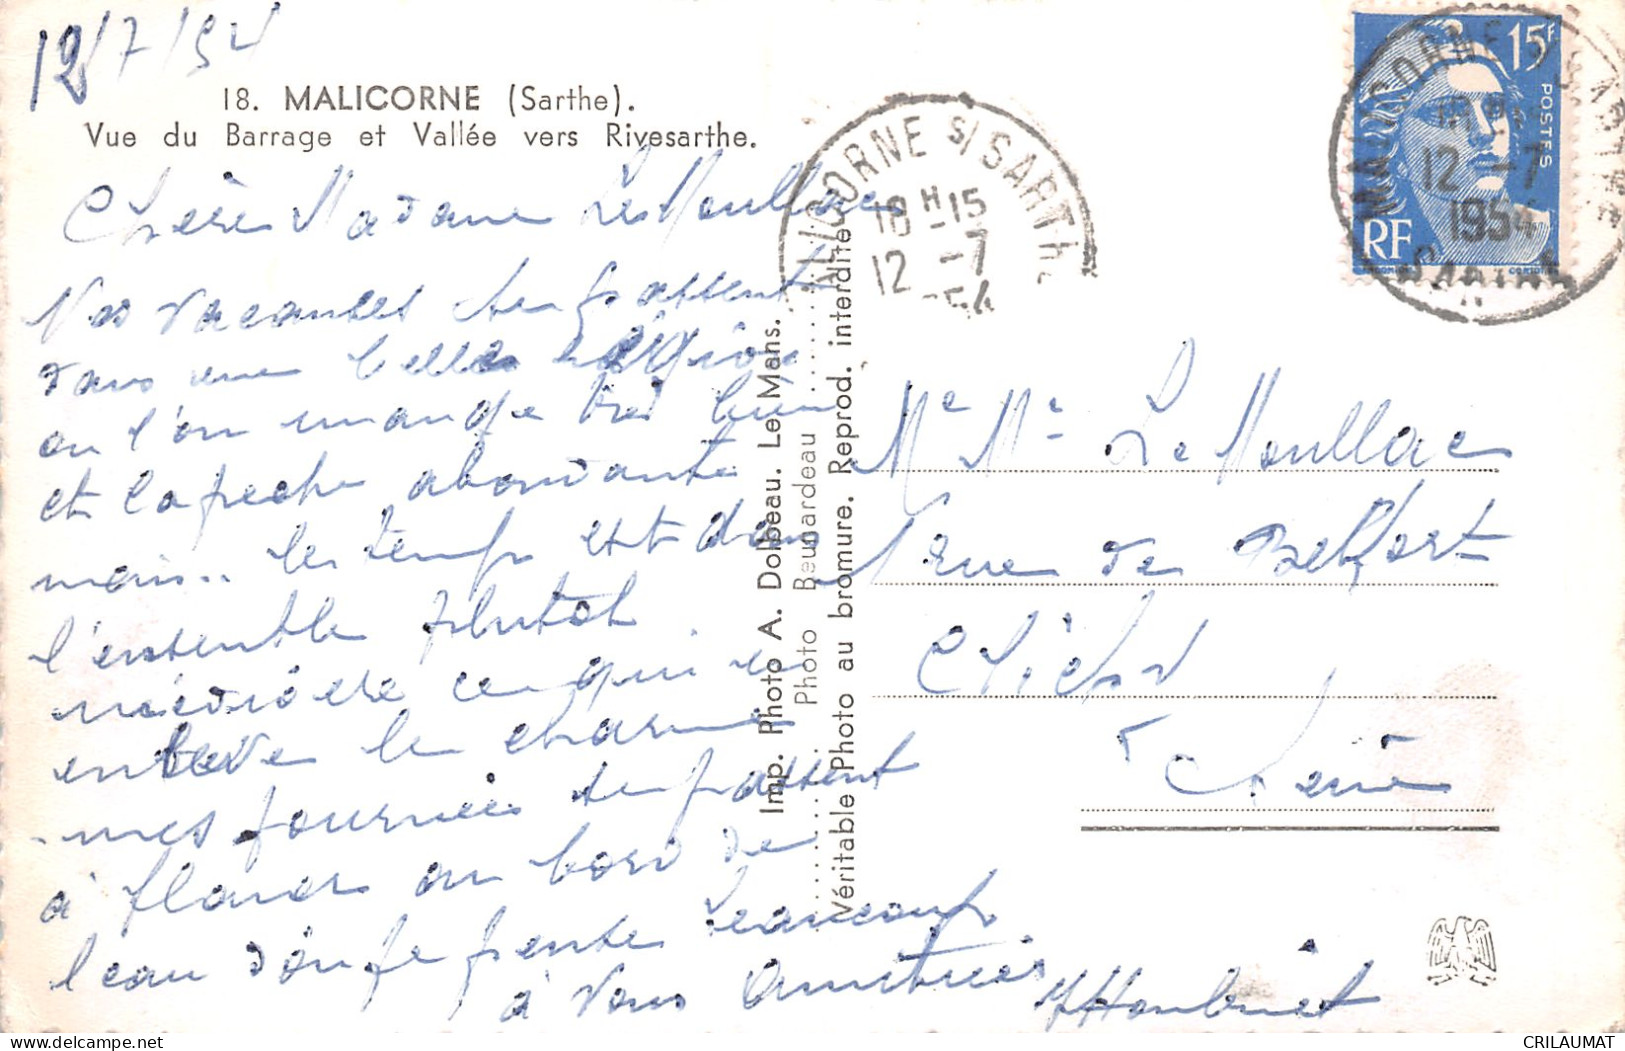 12/7/54
18. MALICORNE (Sarthe).
Vue du Barrage et Vallée vers Rivesarthe.
Chère Madame Le Moullac
Nos vacances se passent
dans une belle région
ou l'on mange très bien
et la peche abondante
mais.. le temps est dans
l'ensemble plutot
médiocre ce qui
enlève le charme
mes journées se passent
à flaner au bord de
l'eau d'ou je pense beaucoup
à vous Amitiés
Imp. Photo A. Dolbeau. Le Mans.
Photo Beunardeau
Véritable Photo au bromure. Reprod. interdite
MALICORNE S/ SARTHE
18H-15
12 -7
54
15F
POSTES
RF
MALICORNE S/ SARTHE
12 -7
1954
SARTHE
Me Me Le Moullac
rue de Belfort
Clichy
Seine
CRILAUMAT